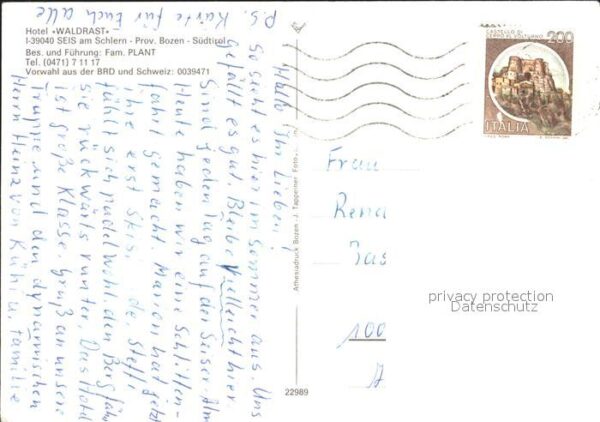 P.S. Karte für Euch alle
Hotel «WALDRAST»
I-39040 SEIS am Schlern - Prov. Bozen - Südtirol
Bes. und Führung: Fam. PLANT
Tel. (0471) 7 11 17
Vorwahl aus der BRD und Schweiz: 0039471
Hallo Ihr Lieben!
So sieht es hier im Sommer aus. Uns
gefällt es gut. Bleibe vielleicht hier.
Sind jeden Tag auf der Seiser-Alm
Heute haben wir eine Schlitten-
fahrt gemacht. Marion hat jetzt
ihre erst Skisi die, Steffi
fühlt sich pudelwohl, den Berg fährt
sie rückwärts runter. Das Hotel
ist große Klasse. Gruß an unsere
Truppe und den dynamischen
Herrn Heinz von Kühl u. Familie
22989
Athesiadruck Bozen - J. Tappeiner Foto
CASTELLO DI
CERRO AL VOLTURNO
200
ITALIA
Frau
Rena
Jas
100
A
privacy protection
Datenschutz